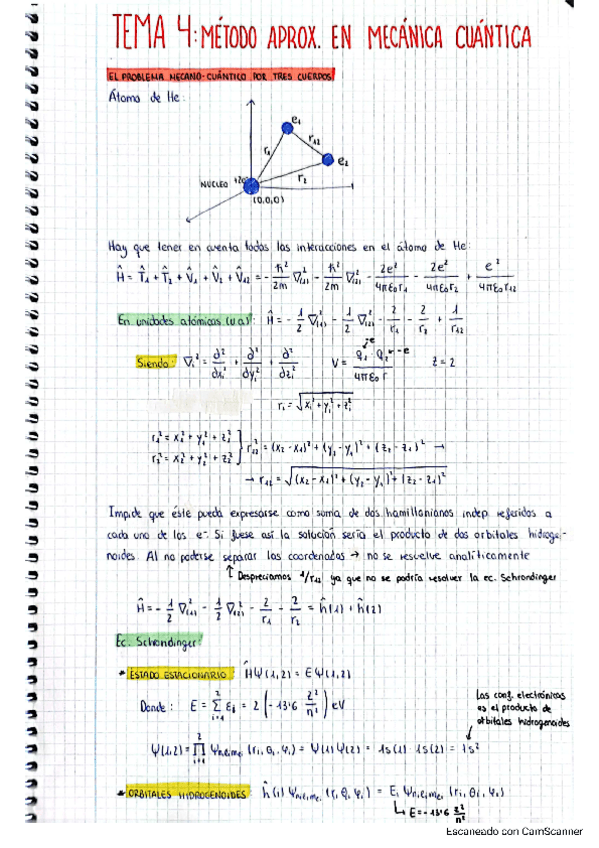 TEMA 4: MÉTODO APROX. EN MECÁNICA CUÁNTICA
EL PROBLEMA MECANO-CUÁNTICO POR TRES CUERPOS
Átomo de He:
e₁
r₁₂
r₁
e₂
r₂
NÚCLEO
(0,0,0)
Hay que tener en cuenta todas las interacciones en el átomo de He:
Ĥ = T̂₁ + T̂₂ + V̂₁ + V̂₂ + V̂₁₂ = - ħ²/2m ∇²₍₁₎ - ħ²/2m ∇²₍₂₎ - 2e²/4πε₀r₁ - 2e²/4πε₀r₂ + e²/4πε₀r₁₂
En unidades atómicas (u.a): Ĥ = - 1/2 ∇²₍₁₎ - 1/2 ∇²₍₂₎ - 2/r₁ - 2/r₂ + 1/r₁₂
Siendo: ∇ᵢ² = ∂²/∂xᵢ² + ∂²/∂yᵢ² + ∂²/∂zᵢ² V = Q₁·Q₂/4πε₀r z = 2
rᵢ = √xᵢ² + yᵢ² + zᵢ²
r₁² = x₁² + y₁² + z₁²
r₂² = x₂² + y₂² + z₂² } r₁₂² = (x₂ - x₁)² + (y₂ - y₁)² + (z₂ - z₁)² →
→ r₁₂ = √(x₂ - x₁)² + (y₂ - y₁)² + (z₂ - z₁)²
Impide que éste pueda expresarse como suma de dos hamiltonianos indep. referidos a
cada uno de los e⁻. Si fuese así la solución sería el producto de dos orbitales hidroge-
noides. Al no poderse separar las coordenadas → no se resuelve analíticamente
↑ Despreciamos 1/r₁₂ ya que no se podría resolver la ec. Schrondinger
Ĥ = - 1/2 ∇²₍₁₎ - 1/2 ∇²₍₂₎ - 2/r₁ - 2/r₂ = ĥ(1) + ĥ(2)
Ec. Schrondinger:
* ESTADO ESTACIONARIO: ĤΨ(1,2) = EΨ(1,2)
Donde: E = Σ εᵢ = 2 (-13'6 z²/n²) eV
Las conf. electrónicas
es el producto de
orbitales hidrogenoides
Ψ(1,2) = ∏ Ψnᵢℓᵢmℓᵢ (rᵢ, θᵢ, φᵢ) = Ψ(1) Ψ(2) = 1s(1) · 1s(2) = 1s²
* ORBITALES HIDROGENOIDES: ĥ(i) Ψnᵢℓᵢmℓᵢ (rᵢ, θᵢ, φᵢ) = Eᵢ Ψnᵢℓᵢmℓᵢ (rᵢ, θᵢ, φᵢ)
↳ E = -13'6 z²/n²
Escaneado con CamScanner